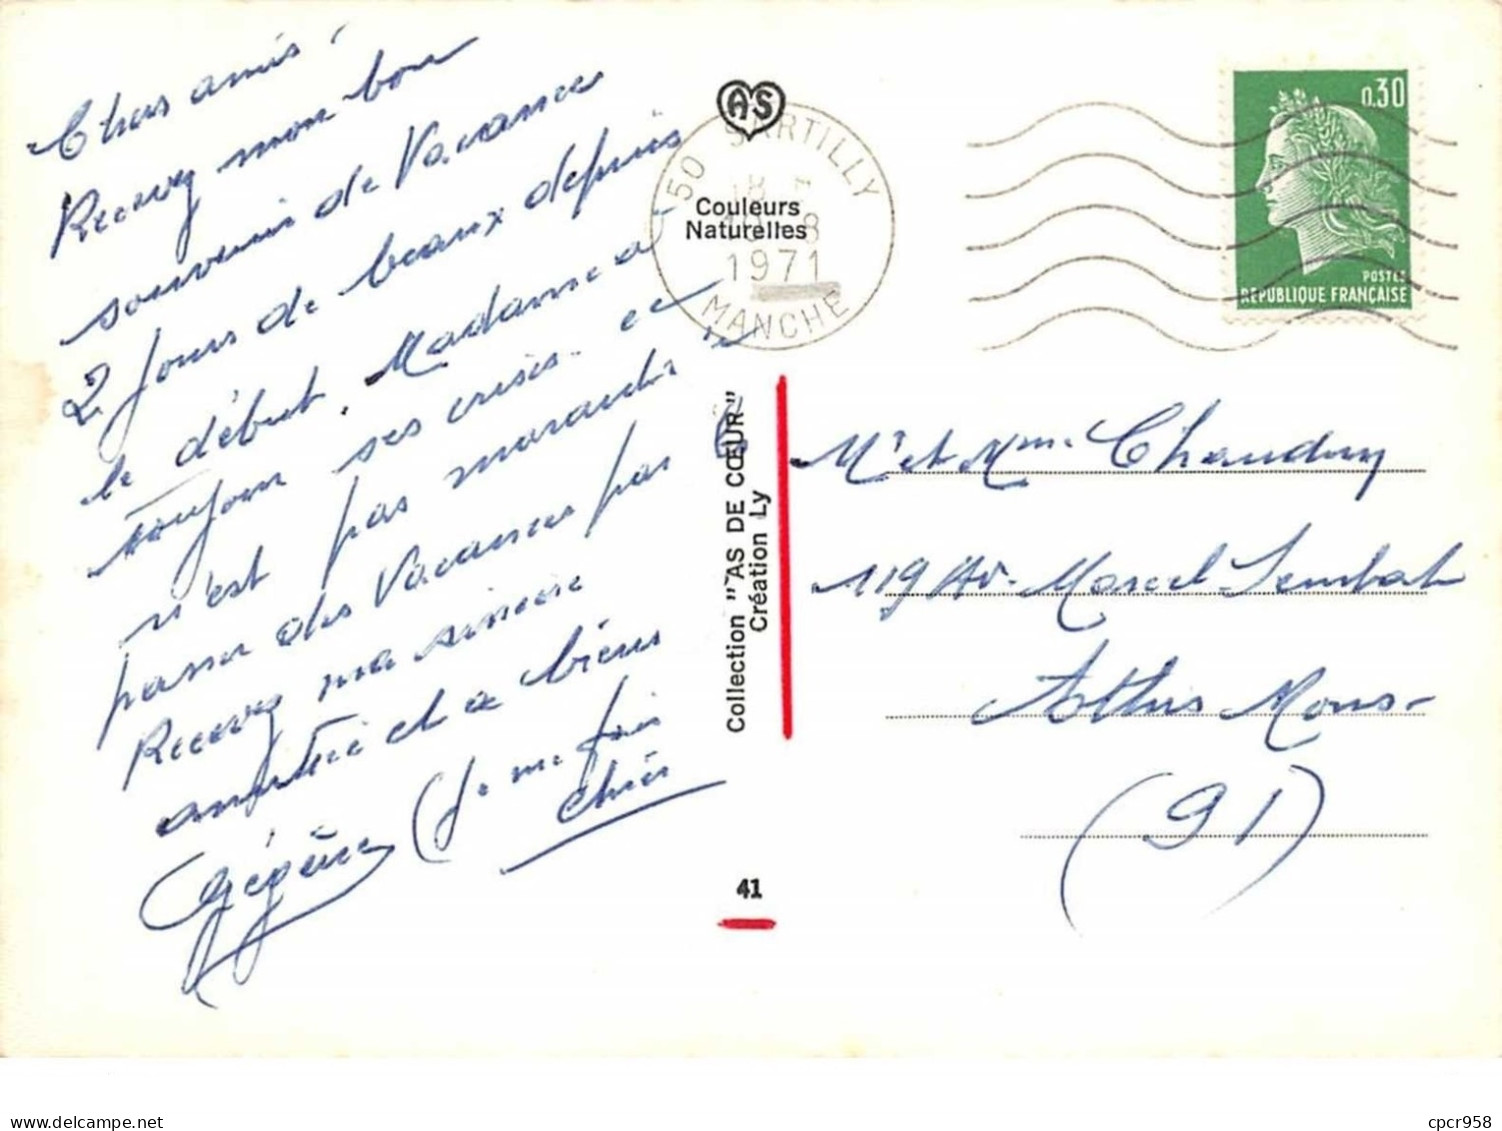 Chers amis,
Recevez mon bon
souvenir de Vacances
2 jours de beaux depuis
le début. Madame a
toujours ses crises. ce
n'est pas marrant de
passer des Vacances par
Recevez ma sincère
amitié et a bientôt
Gégène (je me fais
chier
AS
50 SARTILLY
18 H
10 - 8
1971
MANCHE
Couleurs
Naturelles
0,30
POSTES
REPUBLIQUE FRANÇAISE
Collection "AS DE CŒUR"
Création Ly
41
Mr et Mme Chaudron
119 Av. Marcel Sembat
Athis Mons-
(91)
cpcr958